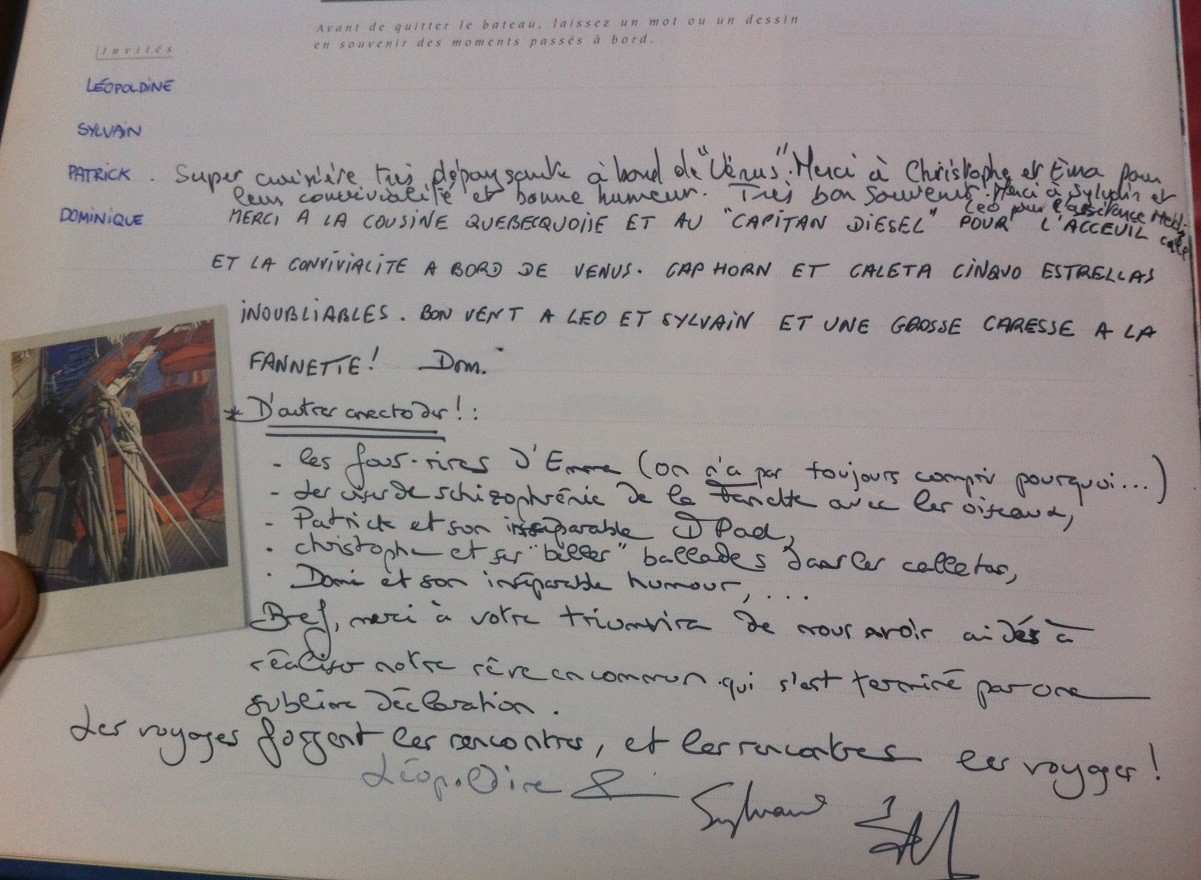 Avant de quitter le bateau, laissez un mot ou un dessin
en souvenir des moments passés à bord.
Invités
LÉOPOLDINE
SYLVAIN
PATRICK. Super croisière très dépaysante à bord de "Vénus". Merci à Christophe et Ema pour
leur convivialité et bonne humeur. Très bon souvenir. Merci à Sylvain et
Léo pour
DOMINIQUE MERCI A LA COUSINE QUEBECQUOISE ET AU "CAPITAN DIESEL" POUR L'ACCEUIL
ET LA CONVIVIALITE A BORD DE VENUS. CAP HORN ET CALETA CINQUO ESTRELLAS
INOUBLIABLES. BON VENT A LEO ET SYLVAIN ET UNE GROSSE CARESSE A LA
FANNETTE! Dom.
* D'autres anectodes! :
- les fous-rires d'Emma (on n'a pas toujours compris pourquoi...)
- Les crises de schizophrénie de la Fanette avec les oiseaux,
- Patrick et son inséparable IPad,
- christophe et ses "belles" ballades dans les calletas,
- Domi et son inséparable humour, ...
Bref, merci à votre triumvira de nous avoir aidés à
réaliser notre rêve en commun qui s'est terminé par une
sublime déclaration.
Les voyages forgent les rencontres, et les rencontres les voyages!
Léopoldine & Sylvain